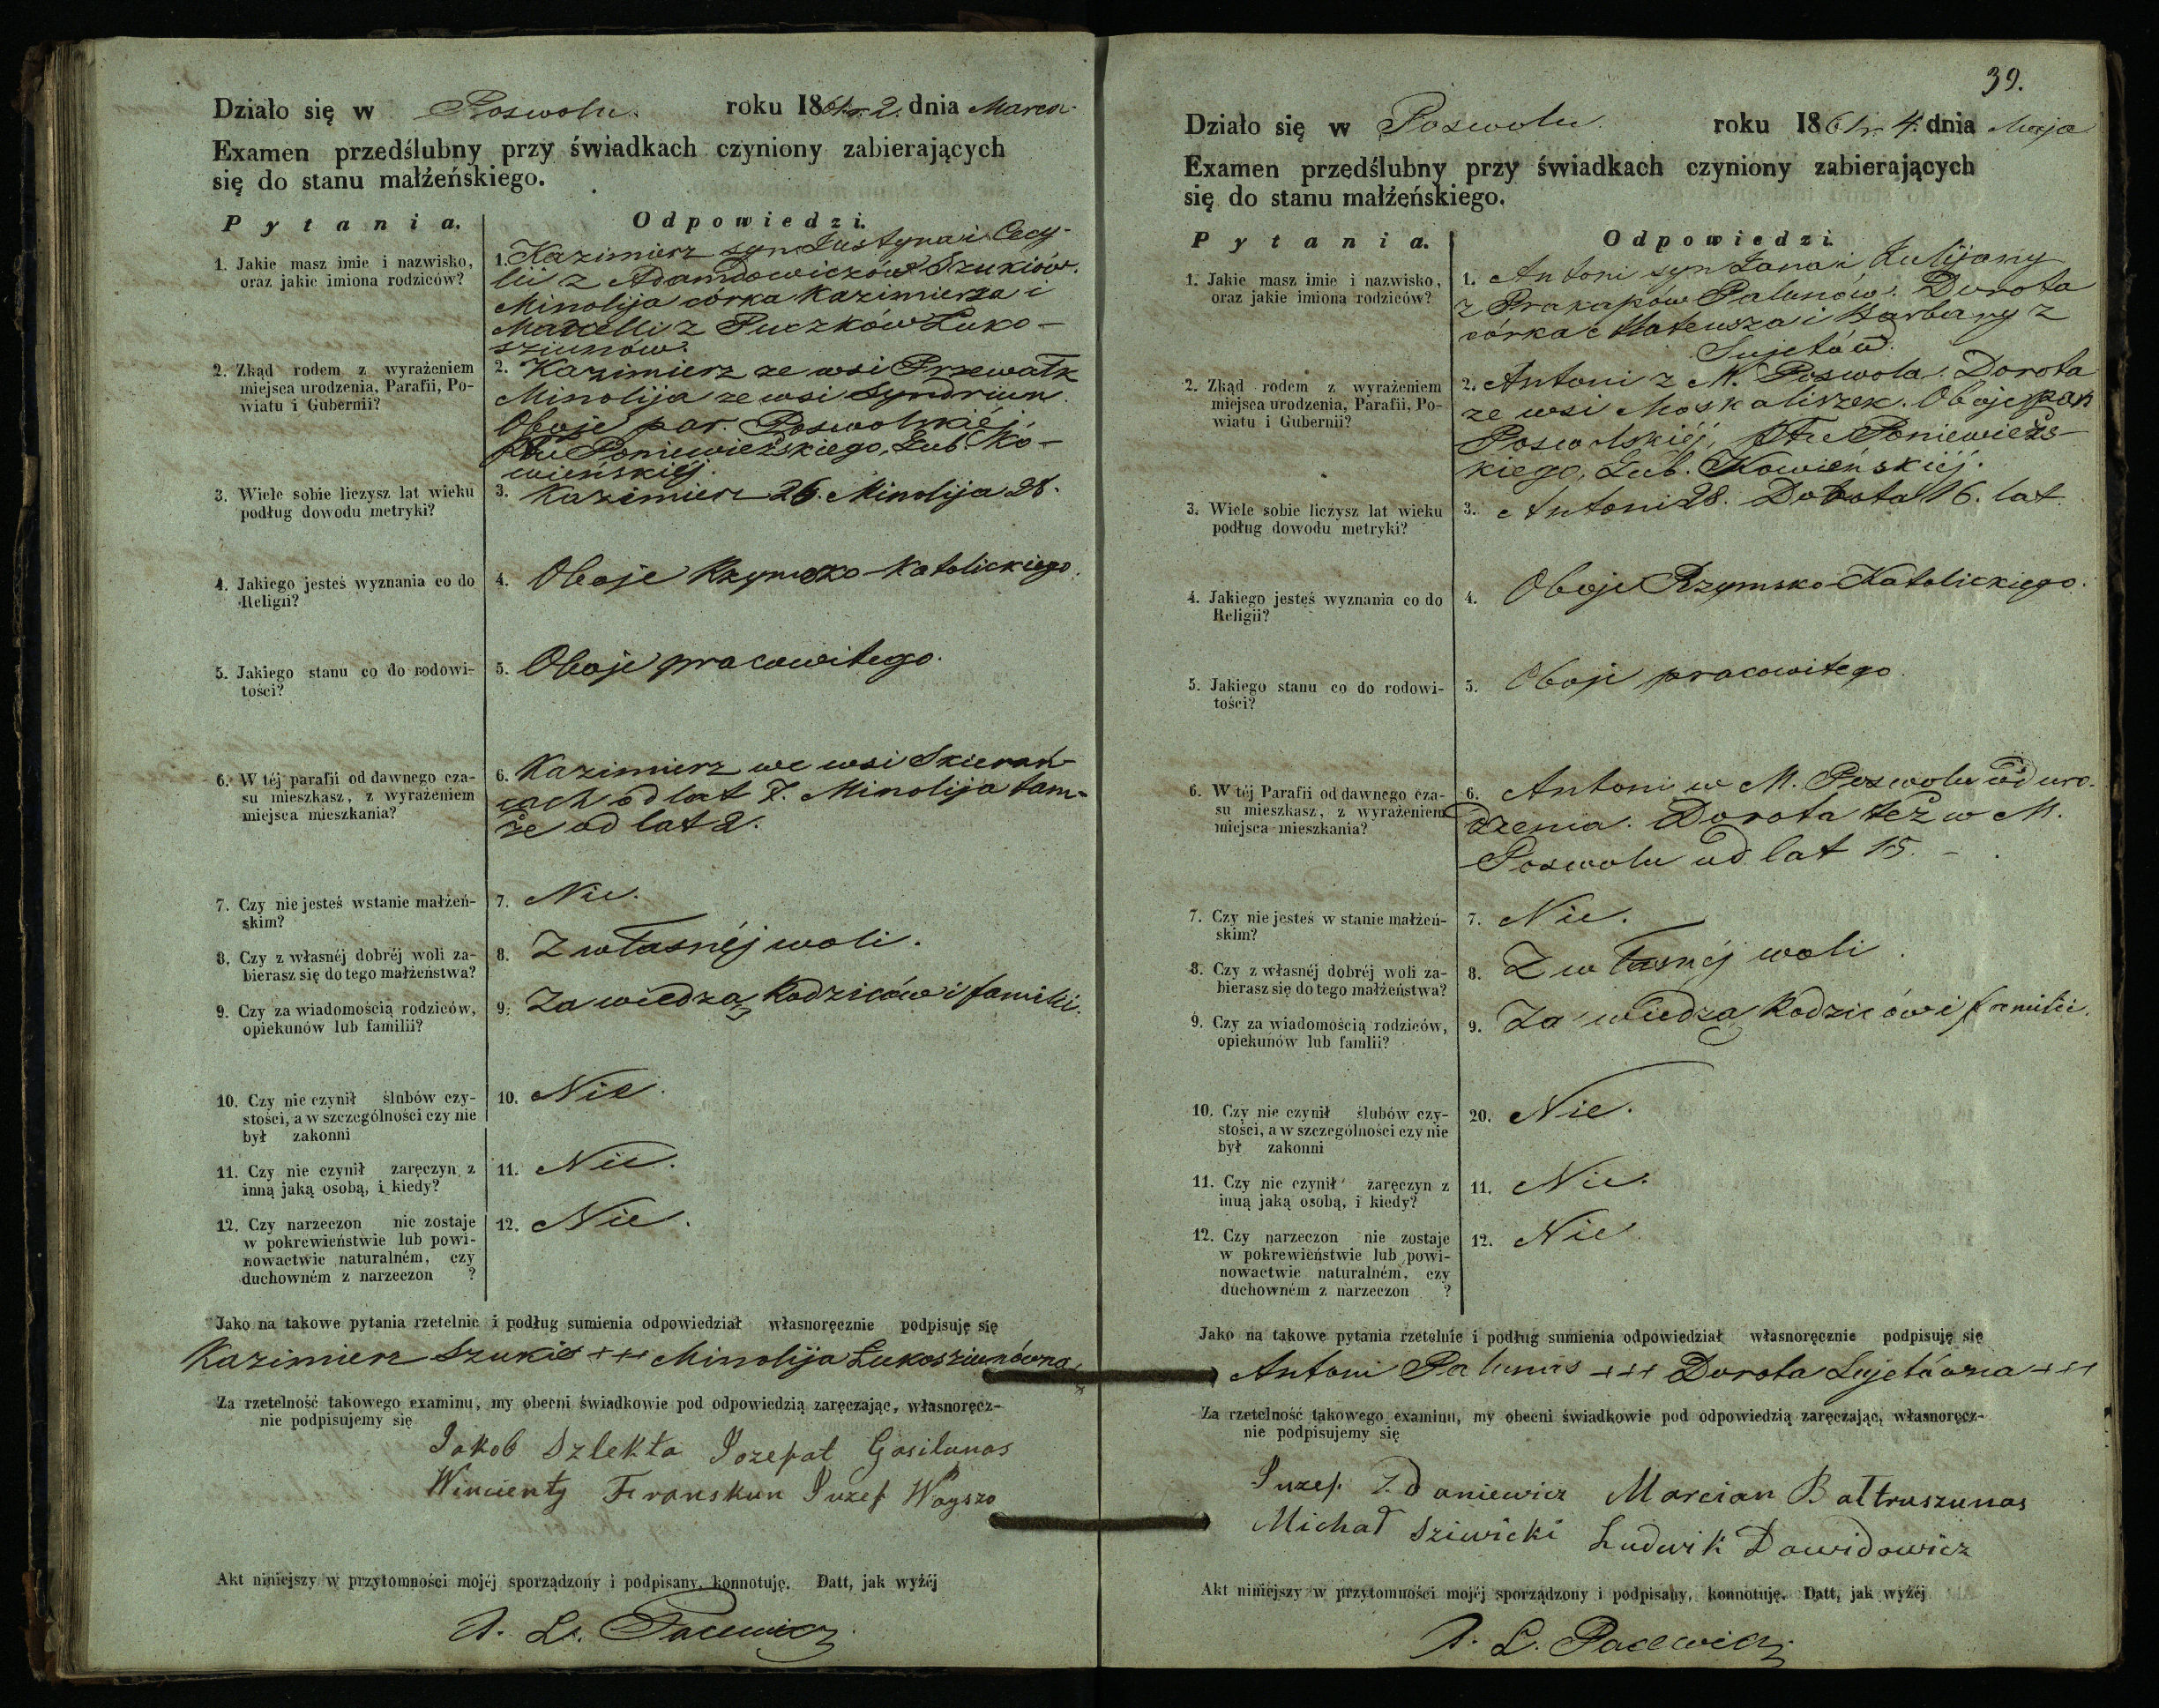 Działo się w Poswolu. roku 1861 r. 2. dnia Marca
Examen przedślubny przy świadkach czyniony zabierających
się do stanu małżeńskiego.
Pytania. Odpowiedzi.
1. Jakie masz imie i nazwisko,
oraz jakie imiona rodziców?
1. Kazimierz syn Justyna i Cecy-
lii z Adamowiczów Szukiów.
Minolija córka Kazimierza i
Marcelli z Puczków Łuko-
sziunów.
2. Zkąd rodem z wyrażeniem
miejsca urodzenia, Parafii, Po-
wiatu i Gubernii?
2. Kazimierz ze wsi Przewałk
Minolija ze wsi Syndriun.
Oboje par. Poswolskiéj
Ptu Poniewieżskiego, Gub. Ko-
wieńskiéj.
3. Wiele sobie liczysz lat wieku
podług dowodu metryki?
3. Kazimierz 26. Minolija 28.
4. Jakiego jesteś wyznania co do
Religii?
4. Oboje Rzymsko-Katolickiego.
5. Jakiego stanu co do rodowi-
tości?
5. Oboje pracowitego.
6. W téj parafii od dawnego cza-
su mieszkasz, z wyrażeniem
miejsca mieszkania?
6. Kazimierz we wsi
od lat 7. Minolija tam-
że od lat 2.
7. Czy nie jesteś w stanie małżeń-
skim?
7. Nie.
8. Czy z własnéj dobréj woli za-
bierasz się do tego małżeństwa?
8. Z własnéj woli.
9. Czy za wiadomością rodziców,
opiekunów lub familii?
9. Za wiedzą Rodziców i familii.
10. Czy nie czynił ślubów czy-
stości, a w szczególności czy nie
był zakonni
10. Nie.
11. Czy nie czynił zaręczyn z
inną jaką osobą, i kiedy?
11. Nie.
12. Czy narzeczon nie zostaje
w pokrewieństwie lub powi-
nowactwie naturalném, czy
duchowném z narzeczon ?
12. Nie.
Jako na takowe pytania rzetelnie i podług sumienia odpowiedział własnoręcznie podpisuję się
Kazimierz Szukis +++ Minolija Łukosziunówna
Za rzetelność takowego examinu, my obecni świadkowie pod odpowiedzią zaręczając, własnoręcz-
nie podpisujemy się
Jakob Szlekta Jozefat Gasilunas
Wincienty Franskun Juzef Woyszo
Akt niniejszy w przytomności mojéj sporządzony i podpisany, konnotuję. Datt, jak wyżéj
Pacewicz
39.
Działo się w Poswolu. roku 1861 r. 4. dnia Maja
Examen przedślubny przy świadkach czyniony zabierających
się do stanu małżeńskiego.
Pytania. Odpowiedzi.
1. Jakie masz imie i nazwisko,
oraz jakie imiona rodziców?
1. Antoni syn Jana i Julijany
z Prakapów Palunów. Dorota
córka Mateusza i Barbary z
Sujetów.
2. Zkąd rodem z wyrażeniem
miejsca urodzenia, Parafii, Po-
wiatu i Gubernii?
2. Antoni z M. Poswola. Dorota
ze wsi Moskaliszek. Oboje par
Poswolskiéj, Ptu Poniewieżs-
kiego, Gub. Kowieńskiéj.
3. Wiele sobie liczysz lat wieku
podług dowodu metryki?
3. Antoni 28. Dorota 16. lat
4. Jakiego jesteś wyznania co do
Religii?
4. Oboje Rzymsko-Katolickiego.
5. Jakiego stanu co do rodowi-
tości?
5. Oboje pracowitego
6. W téj Parafii od dawnego cza-
su mieszkasz, z wyrażeniem
miejsca mieszkania?
6. Antoni w M. Poswolu od uro-
dzenia. Dorota też w M.
Poswolu od lat 15.
7. Czy nie jesteś w stanie małżeń-
skim?
7. Nie.
8. Czy z własnéj dobréj woli za-
bierasz się do tego małżeństwa?
8. Z własnéj woli
9. Czy za wiadomością rodziców,
opiekunów lub famlii?
9. Za wiedzą Rodziców i familii.
10. Czy nie czynił ślubów czy-
stości, a w szczególności czy nie
był zakonni
20. Nie.
11. Czy nie czynił zaręczyn z
inuą jaką osobą, i kiedy?
11. Nie.
12. Czy narzeczon nie zostaje
w pokrewieństwie lub powi-
nowactwie naturalném, czy
duchowném z narzeczon ?
12. Nie
Jako na takowe pytania rzetelnie i podług sumienia odpowiedział własnoręcznie podpisuję się
Antoni Palunas +++ Dorota Sujetówna +++
Za rzetelność takowego examinu, my obecni świadkowie pod odpowiedzią zaręczając, własnoręcz-
nie podpisujemy się
Juzef Zdaniewicz Marcian Baltruszunas
Michał Sziwicki Ludwik Dawidowicz
Akt niniejszy w przytomności mojéj sporządzony i podpisany, konnotuję. Datt, jak wyżéj
L. Pacewicz